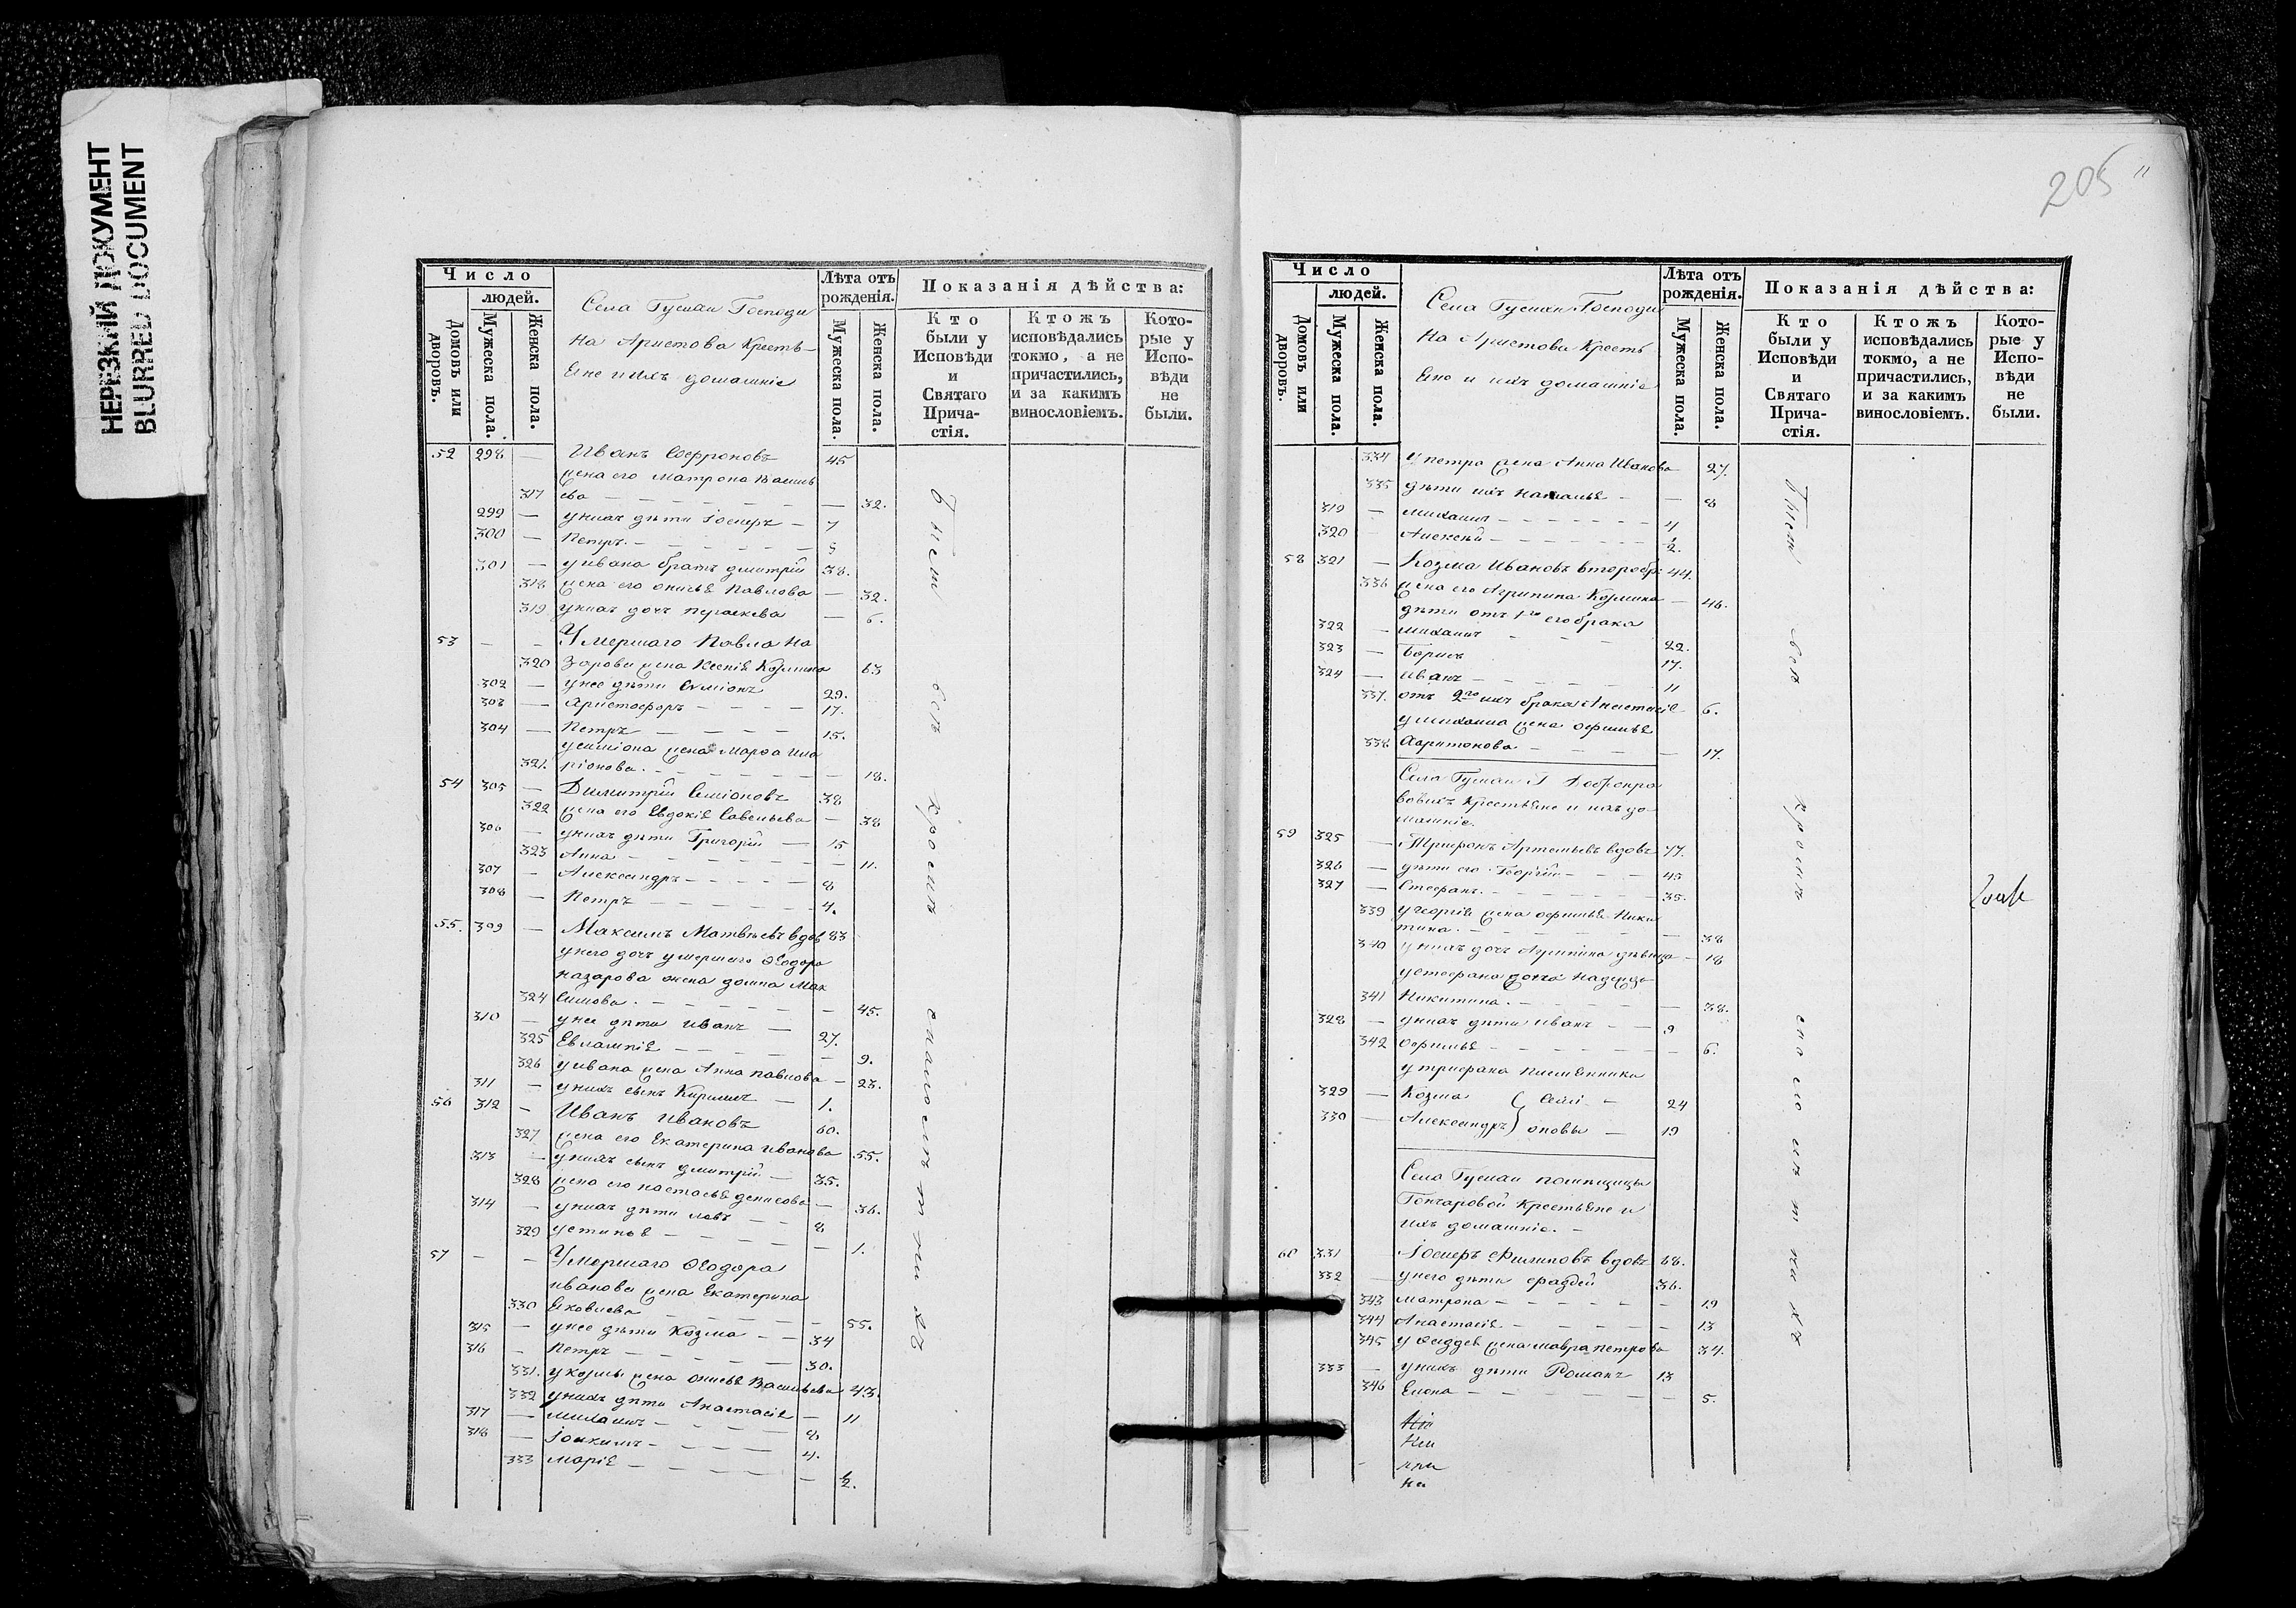 НЕРЕЗКИЙ ДОКУМЕНТ
BLURRED DOCUMENT
205
Число
людей.
Домовъ или дворовъ.
Мужеска пола.
Женска пола.
Села Гусман Господи
на Аристова Кресть-
Яне и ихъ домашніе
Лѣта отъ рожденія.
Мужеска пола.
Женска пола.
Показанія дѣйства:
Кто были у Исповѣди и Святаго Причастія.
Ктожъ исповѣдались токмо, а не причастились, и за какимъ винословіемъ.
Которые у Исповѣди не были.
52 298 — Иванъ Софроновъ 45
жена его Матрона Васильь
317 ева — 32.
299 — у нихъ дѣти Іосифъ — 7
300 — Петръ — 5
301 — у Ивана братъ Дмитрій 38.
318 жена его Анисья Павлова — 32.
319 у нихъ дочь Параскева — 6.
53 — — Умершаго Павла На
320 зарова жена Ксенія Козмина 63
302 — у нее дѣти Симіонъ 29.
303 — Аристофоръ — 17.
304 — Петръ — 15.
у Симіона жена Марфа Ила
321. ріонова. — 18.
54 305 — Димитрій Симіоновъ 38
322 жена его Евдокія Савельева — 38
306 — у нихъ дѣти Григорій — 15
323 Анна — 11.
307 — Александръ — 8
308 — Петръ — 4.
55. 309 — Максимъ Матвѣевъ вдов 83
у него дочь умершаго Ѳеодора
Назарова жена Домна Мак
324 симова. — 45.
310 — у нее дѣти Иванъ — 27.
325 Евлампія — 9.
326 у Ивана жена Анна Павлова — 23.
311 — у нихъ сынъ Кириллъ — 1.
56 312 — Иванъ Ивановъ 60.
327 жена его Екатерина Иванова 55.
313 — у нихъ сынъ Дмитрій — 35.
328 жена его Настасья Денисова — 36.
314 — у нихъ дѣти — 8
329 Устинья — 1.
57 — — Умершаго Ѳеодора
Иванова жена Екатерина
330 Яковлева — 55.
315 — у нее дѣти Козма — 34
316 — Петръ — 30.
331. у Козмы жена Анисья Васильева 43.
332 у нихъ дѣти Анастасія — 11
317 — Михаилъ — 8
318 — Іоакимъ — 4.
333 Марія — ½.
Были всѣ кромѣ
Число
людей.
Домовъ или дворовъ.
Мужеска пола.
Женска пола.
Села Гусман Господи
на Аристова Кресть
Яне и ихъ домашніе
Лѣта отъ рожденія.
Мужеска пола.
Женска пола.
Показанія дѣйства:
Кто были у Исповѣди и Святаго Причастія.
Ктожъ исповѣдались токмо, а не причастились, и за какимъ винословіемъ.
Которые у Исповѣди не были.
334 у Петра жена Анна Иванова 27.
335 дѣти ихъ Наталья — 8
319 — Михаилъ — 4
320 Алексѣй — ½.
58 321 — Козма Ивановъ второбр: 44.
336 жена его Агрипина Козмина — 46.
дѣти отъ 1го его брака
322 — Михаилъ 22.
323 — Борисъ 17.
324 — Иванъ — 11
337. отъ 2го ихъ брака Анастасія 6.
у Михаила жена Офимья
338. Харитонова — 17.
Села Гусман Г Добронра
вовыхъ Крестьяне и ихъ до
машніе.
59 325 — Трифонъ Артемьевъ вдовъ 77.
326 — дѣти его Георгій — 45
327 — Стефанъ. — 35.
339 у Георгія жена Офимья Ники
тина. — 38
340 у нихъ дочь Агрипина дѣвица — 18
у Стефана жена Надежда
341 Никитина. — 38.
328 — у нихъ дѣти Иванъ — 9
342 Офимья — 6.
у Трифона племянники
329 — Козма } Симі — 24
330 — Александръ } оновы — 19
Села Гусман помѣщицы
Гончаровой Крестьяне и
ихъ домашніе. —
60 331 Іосифъ Филиповъ вдовъ 68.
332 — у него дѣти Фаддей 36.
343 Матрона — 19
344 Анастасія — 13
345 у Фаддея жена Мавра Петрова 34.
333 — у нихъ дѣти Романъ 13
346 Елена — 5.
Были всѣ кромѣ